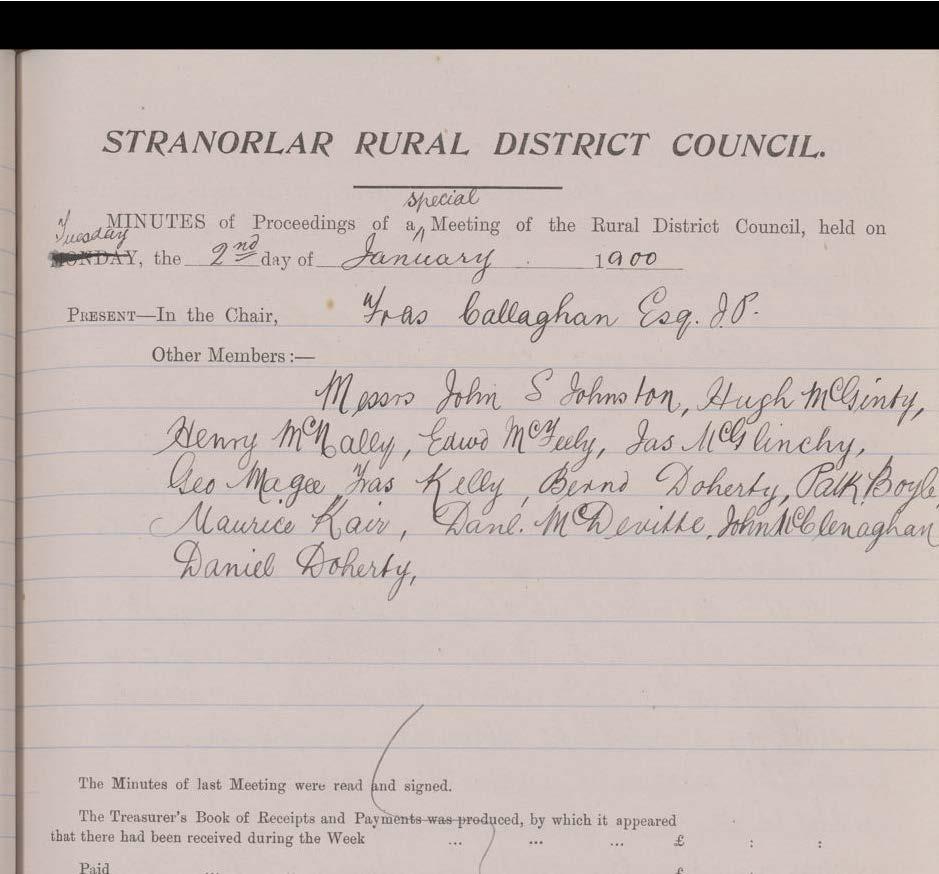 STRANORLAR RURAL DISTRICT COUNCIL.
special
MINUTES of Proceedings of a Meeting of the Rural District Council, held on
Tuesday
MONDAY, the 2nd day of January 1900
PRESENT—In the Chair, Fras Callaghan Esq. J.P.
Other Members:—
Messrs John S Johnston, Hugh McGinty,
Henry McNally, Edwd McFeely, Jas McGlinchy,
Geo Magee, Fras Kelly, Bernd Doherty, Patk Boyle
Maurice Kair, Danl. McDevitte, John McClenaghan
Daniel Doherty,
The Minutes of last Meeting were read and signed.
The Treasurer's Book of Receipts and Payments was produced, by which it appeared
that there had been received during the Week ... ... ... £ : :
Paid ... ... ... £